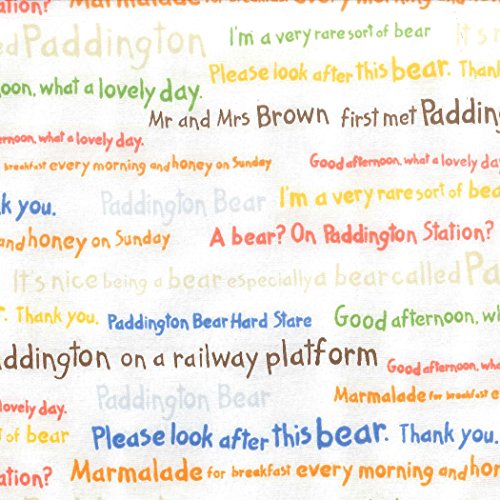 Marmalade for breakfast every morning and honey
Station?
ed Paddington
I'm a very rare sort of bear
It's n
Please look after this bear. Thank
noon, what a lovely day.
Mr and Mrs Brown first met Padding
ernoon, what a lovely day.
for breakfast every morning and honey on Sunday
Good afternoon, what a lovely day
I'm a very rare sort of bea
k you.
Paddington Bear
and honey on Sunday
A bear? On Paddington Station?
It's nice being a bear especially a bear called Pa
r. Thank you.
Paddington Bear Hard Stare
Good afternoon, wh
addington on a railway platform
Good afternoon, what
Paddington Bear
Marmalade for breakfast e
lovely day.
t of bear
Please look after this bear. Thank you.
ation?
Marmalade for breakfast every morning and hone